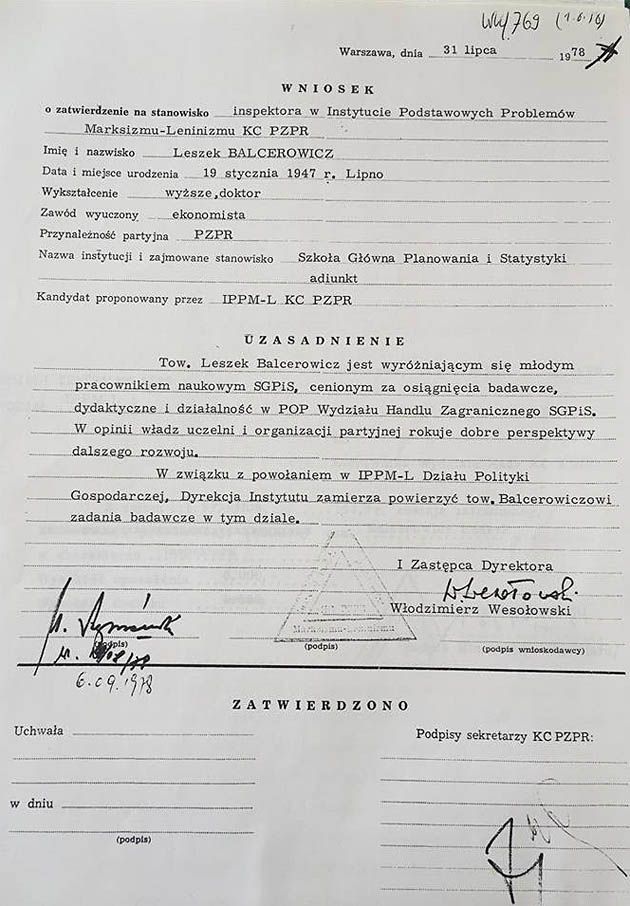 Warszawa, dnia 31 lipca 1978
WNIOSEK
o zatwierdzenie na stanowisko inspektora w Instytucie Podstawowych Problemów
Marksizmu-Leninizmu KC PZPR
Imię i nazwisko Leszek BALCEROWICZ
Data i miejsce urodzenia 19 stycznia 1947 r. Lipno
Wykształcenie wyższe,doktor
Zawód wyuczony ekonomista
Przynależność partyjna PZPR
Nazwa instytucji i zajmowane stanowisko Szkoła Główna Planowania i Statystyki
adiunkt
Kandydat proponowany przez IPPM-L KC PZPR
UZASADNIENIE
Tow. Leszek Balcerowicz jest wyróżniającym się młodym
pracownikiem naukowym SGPiS, cenionym za osiągnięcia badawcze,
dydaktyczne i działalność w POP Wydziału Handlu Zagranicznego SGPiS.
W opinii władz uczelni i organizacji partyjnej rokuje dobre perspektywy
dalszego rozwoju.
W związku z powołaniem w IPPM-L Działu Polityki
Gospodarczej, Dyrekcja Instytutu zamierza powierzyć tow. Balcerowiczowi
zadania badawcze w tym dziale.
I Zastępca Dyrektora
Włodzimierz Wesołowski
Marksizmu-Leninizmu
(podpis) (podpis) (podpis wnioskodawcy)
6.09.1978
ZATWIERDZONO
Uchwała
Podpisy sekretarzy KC PZPR:
w dniu
(podpis)